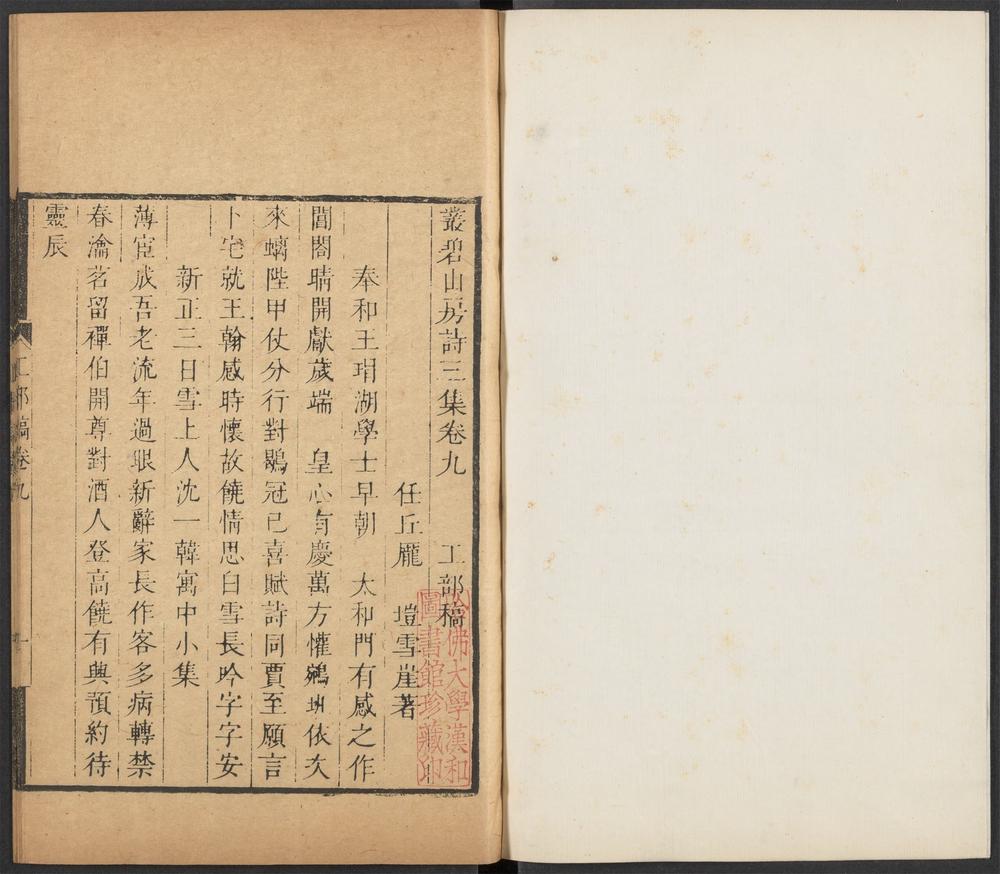 叢碧山房詩三集卷九　工部稿
任丘龐　塏雪崖著
奉和王瑁湖學士早朝　太和門有感之作
閶闔晴開獻歲端　皇心有慶萬方懽鵷班依次
來螭陛甲仗分行對鶡冠已喜賦詩同賈至願言
卜宅就王翰感時懷故饒情思白雪長吟字字安
新正三日雪上人沈一韓寓中小集
薄宦成吾老流年過眼新辭家長作客多病轉禁
春瀹茗留禪伯開尊對酒人登高饒有興預約待
靈辰
工部稿卷九　一
哈佛大學漢和
圖書館珍藏印